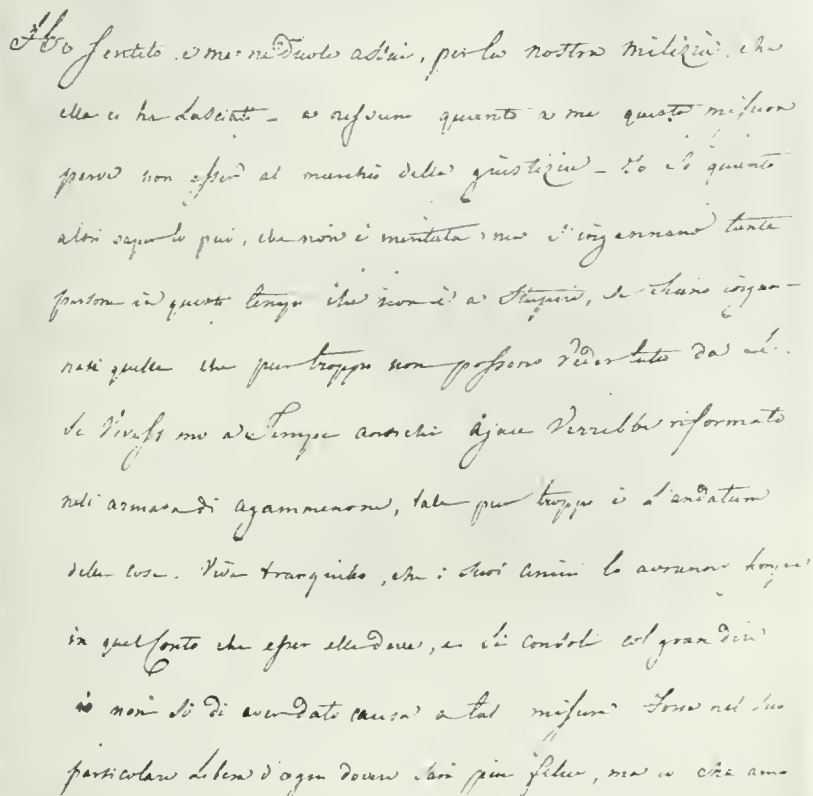 Ho sentito, e me ne duole assai, per la nostra milizia, che
ella ci ha lasciati - a nessuno quanto a me questa misura
parve non esser al marchio della giustizia - Io so quanto
altri saper lo può, che non è meritata, ma s'ingannano tante
persone in questo tempo che non è a stupire, se siano ingan-
nati quelli che pur troppo non possono veder tutto da sé.
Se vivessimo a tempi antichi Ajace verrebbe riformato
nell armata di agammenone, tale pur troppo è l'andatura
delle cose. Viva tranquillo, che i suoi amici lo avranno
in quel conto che esser elle deve, e si consoli col gran dir
io non so di aver dato causa a tal misura Forse nel suo
particolare libero d'ogni dovere sarà più felice, ma io che amo